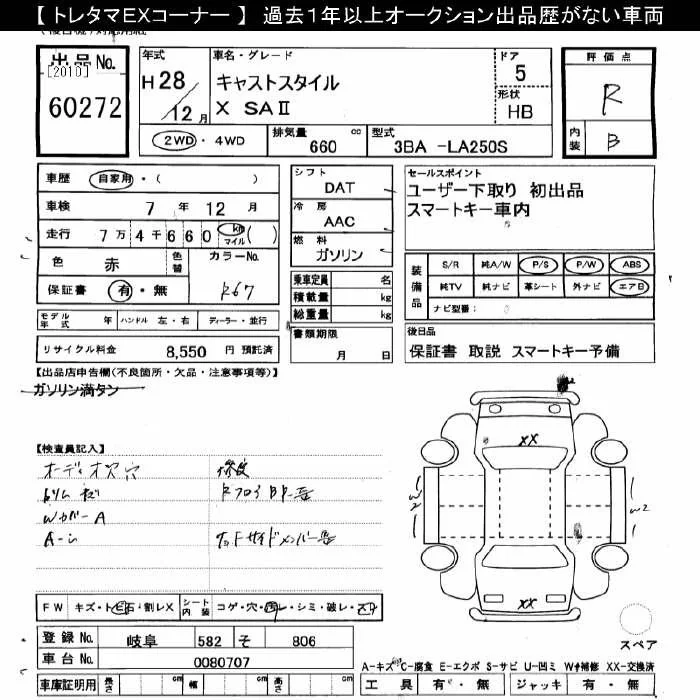 【 トレタマEXコーナー 】 過去１年以上オークション出品歴がない車両
出品 No.
[2010]
60272
年式
H 28
12 月
車名・グレード
キャストスタイル
X SAⅡ
ドア
5
形状
HB
評価点
R
内装
B
2WD ・ 4WD
排気量
660 cc
型式
3BA -LA250S
車歴 自家用 ・ ( )
車検 7 年 12 月
走行 7 万 4 千 6 6 0 km マイル ( )
色 赤
色替
カラーNo.
R67
保証書 有 ・ 無
シフト
DAT
冷房
AAC
燃料
ガソリン
乗車定員 名
積載量 kg
総重量 kg
セールスポイント
ユーザー下取り 初出品
スマートキー車内
装備品
S/R 純A/W P/S P/W ABS
純TV 純ナビ 革シート 外ナビ エアB
ナビ型番:
モデル年式 年 ハンドル 左 ・ 右 ディーラー ・ 並行
書類期限
月 日
リサイクル料金 8,550 円 預託済
後日品
保証書 取説 スマートキー予備
【出品店申告欄(不良箇所・欠品・注意事項等)】
ガソリン満タン
【検査員記入】
オーディオス穴
Wカバー A
XX
W2
W2
XX
FW キズ・トビ石・割レX
シート内装 コゲ・穴・汚レ・シミ・破レ・スレ
登録 No. 岐阜 582 そ 806
車台 No. 0080707
スペア
A-キズ C-腐食 E-エクボ S-サビ U-凹ミ W-補修 XX-交換済
車庫証明用 長さ cm 幅 cm 高さ cm
工具 有 ・ 無 ジャッキ 有 ・ 無